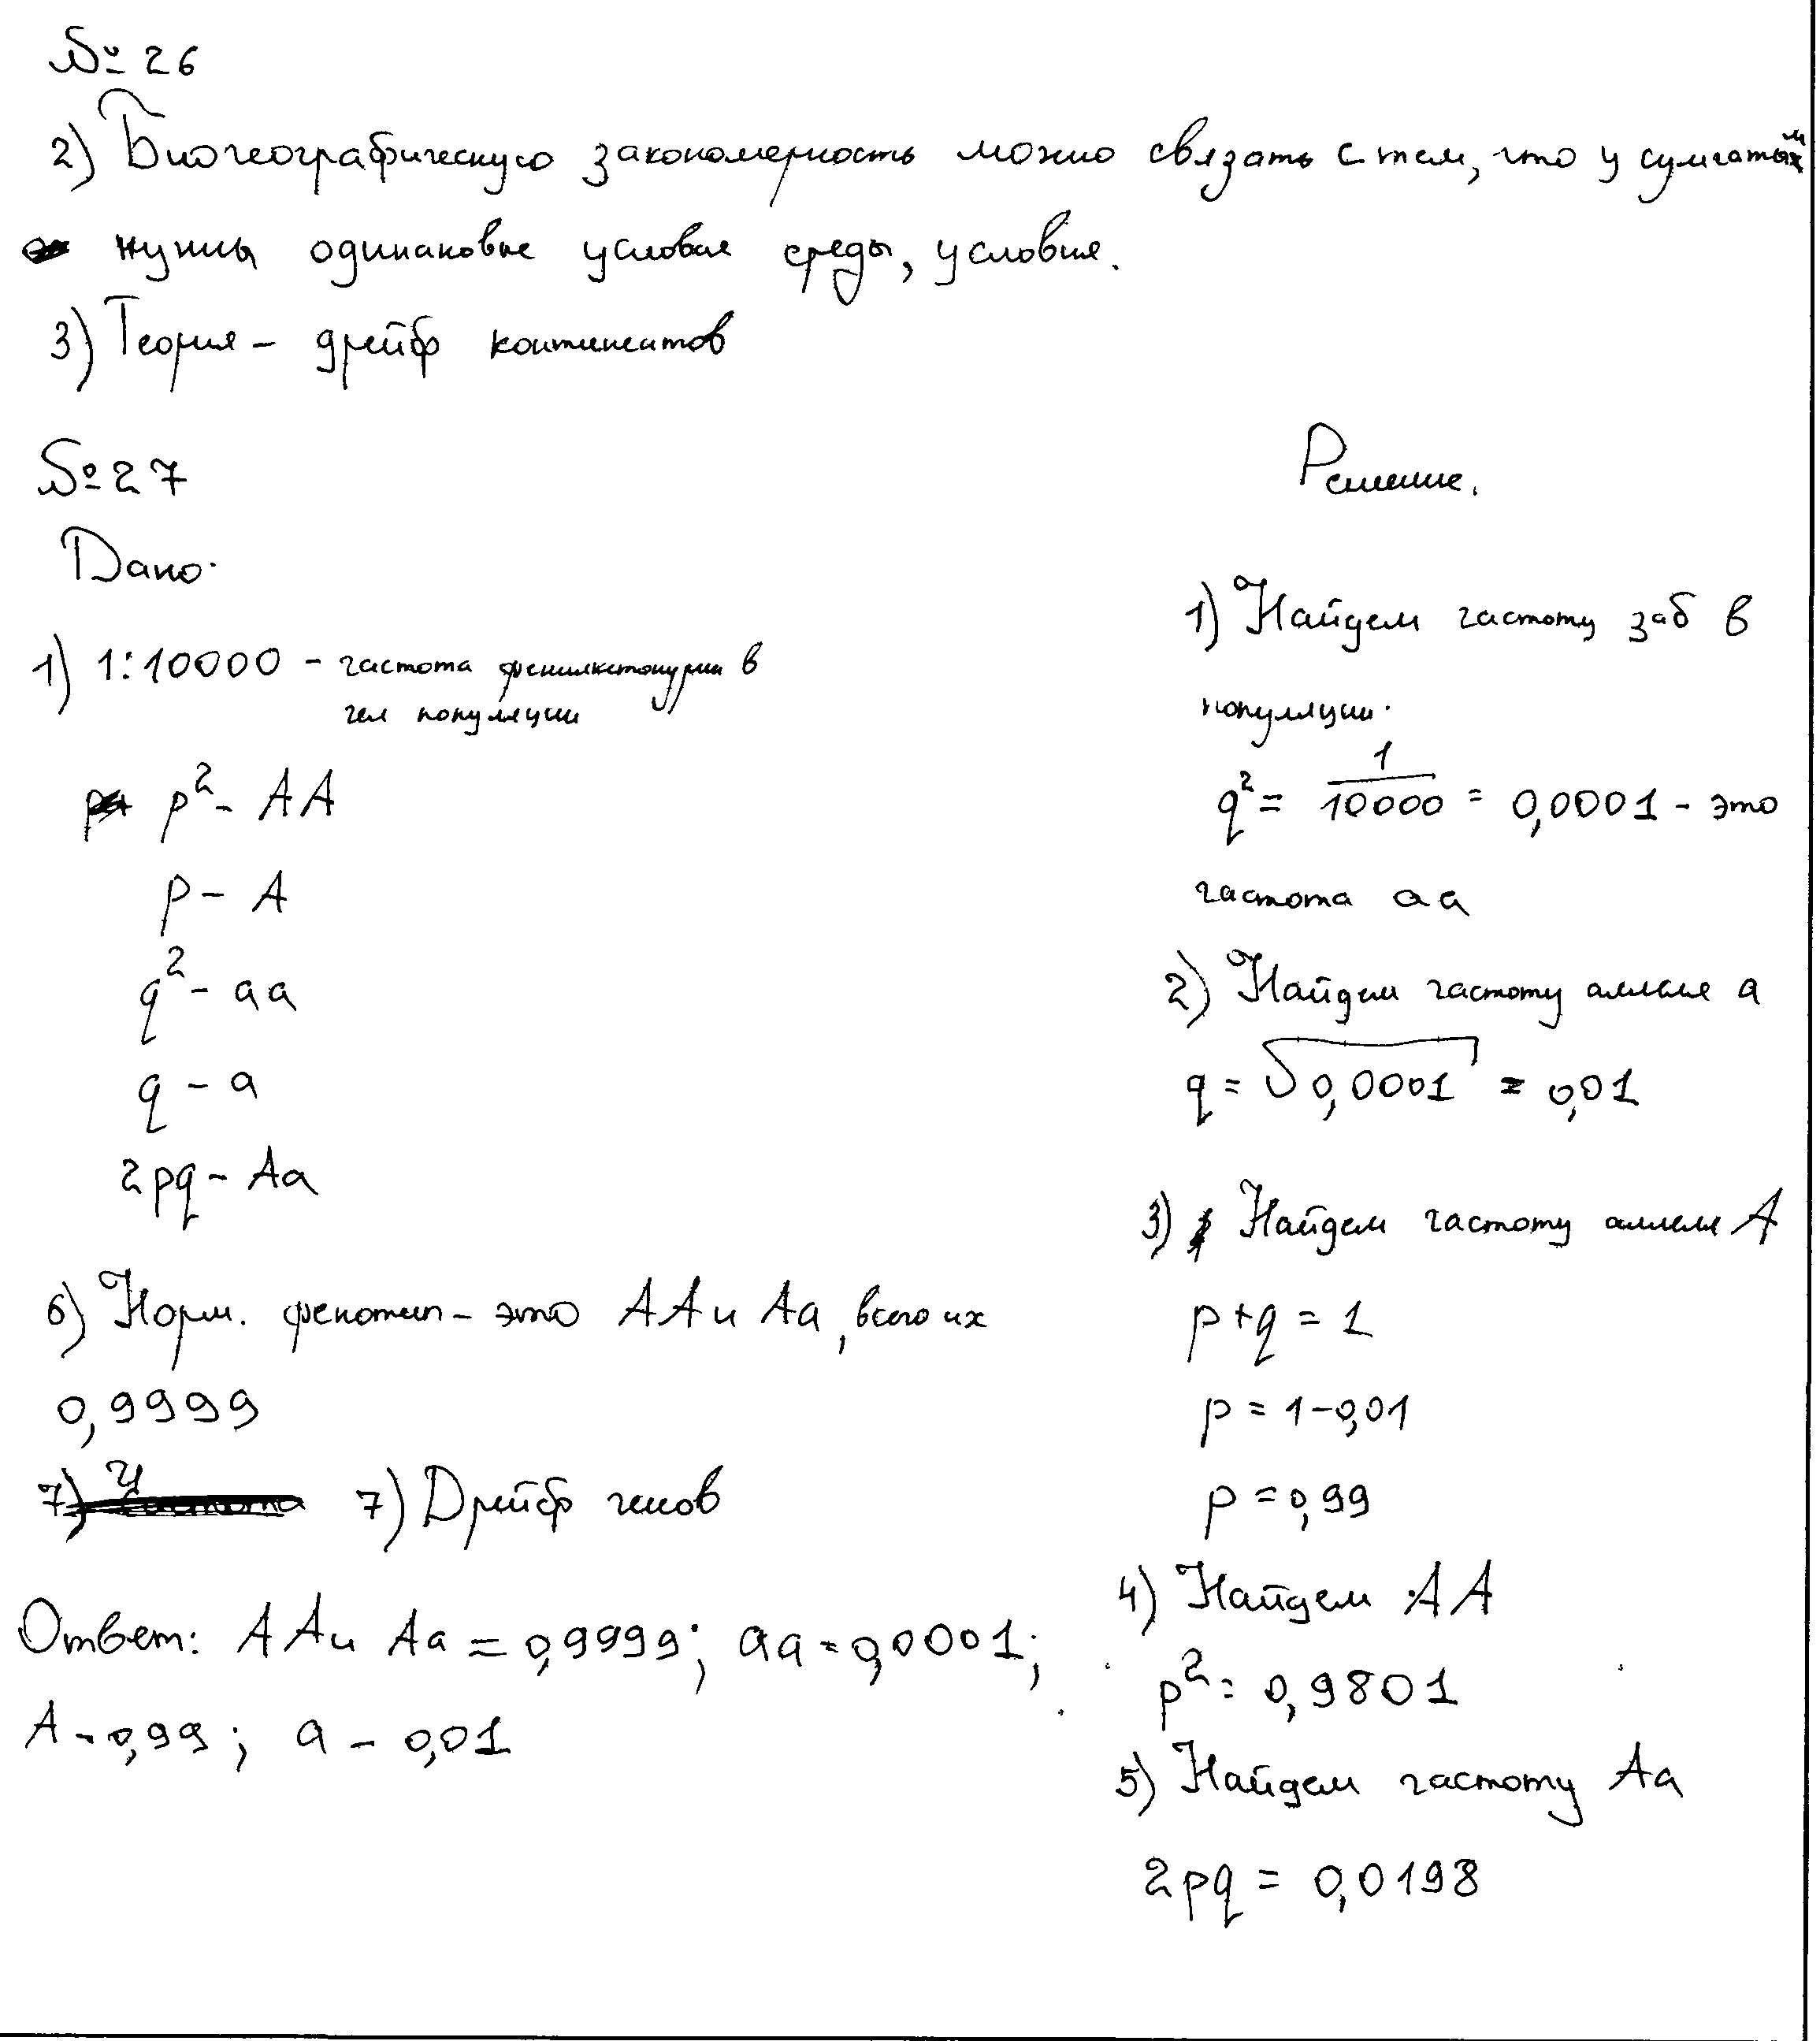 № 26
2) Биогеографическую закономерность можно связать с тем, что у сумчатым
нужны одинаковые условия среды, условия.
3) Теория - дрейф континентов
№ 27
Дано:
1) 1:10000 - частота фенилкетонурии в
чел популяции
p² - AA
p - A
q² - aa
q - a
2pq - Aa
6) Норм. фенотип - это AA и Aa, всего их
0,9999
7) Дрейф генов
Ответ: AA и Aa = 0,9999; aa = 0,0001;
A - 0,99; a - 0,01
Решение.
1) Найдем частоту заб в
популяции.
q² = 1/10000 = 0,0001 - это
частота aa
2) Найдем частоту аллеля a
q = √0,0001 = 0,01
3) Найдем частоту аллеля A
p + q = 1
p = 1 - 0,01
p = 0,99
4) Найдем AA
p² = 0,9801
5) Найдем частоту Aa
2pq = 0,0198